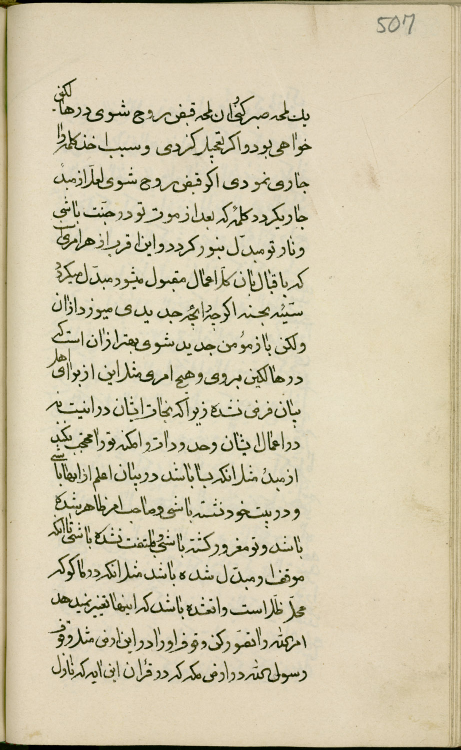 507
یك لمحه صبر كنی ان لمحه قبض روح شوی در هالكین
خواهی بود و اكر تعجیل كردی و سبب اخذ كلمه را
جاری نمودی اكر قبض روح شوی لعل از مبدء
جاری كردد كلمهٔ كه بعد از موت تو در جنت باشی
و نار تو مبدل بنور كردد و این اقرب از هر امری
كه باقبال بان كل اعمال مقبول میشود مبدل میكردد
سیئه بحسنه اكر چه انچه جدیدی میورزد از ان
ولكن باز مؤمن جدید شوی بهتر از ان است كه
در هالكین بروی و هیچ امری مثل این از برای اهل
بیان فرض نشده زیرا كه نجات ایشان در انست نه
در اعمال ایشان و حدود ات و امكنه تو را محتجب نكند
از مبدء مثل انكه بسا باشد در بیان اعلم از ابها باشی
و در بیت خود نشسته باشی و صاحب امر ظاهر شده
باشد و تو مغرور كشته باشی و ملتفت نشده باشی تا انكه
موقف او مبدل شده باشد مثل انكه در ماكو كه
محل ظل است واقع شده باشد كه اینها تغییر نمیدهد
امر الله را تصور كن وقوف او را در این ارض مثل وقوف
رسول الله در ارض مكه كه در قران این ایه كه نازل